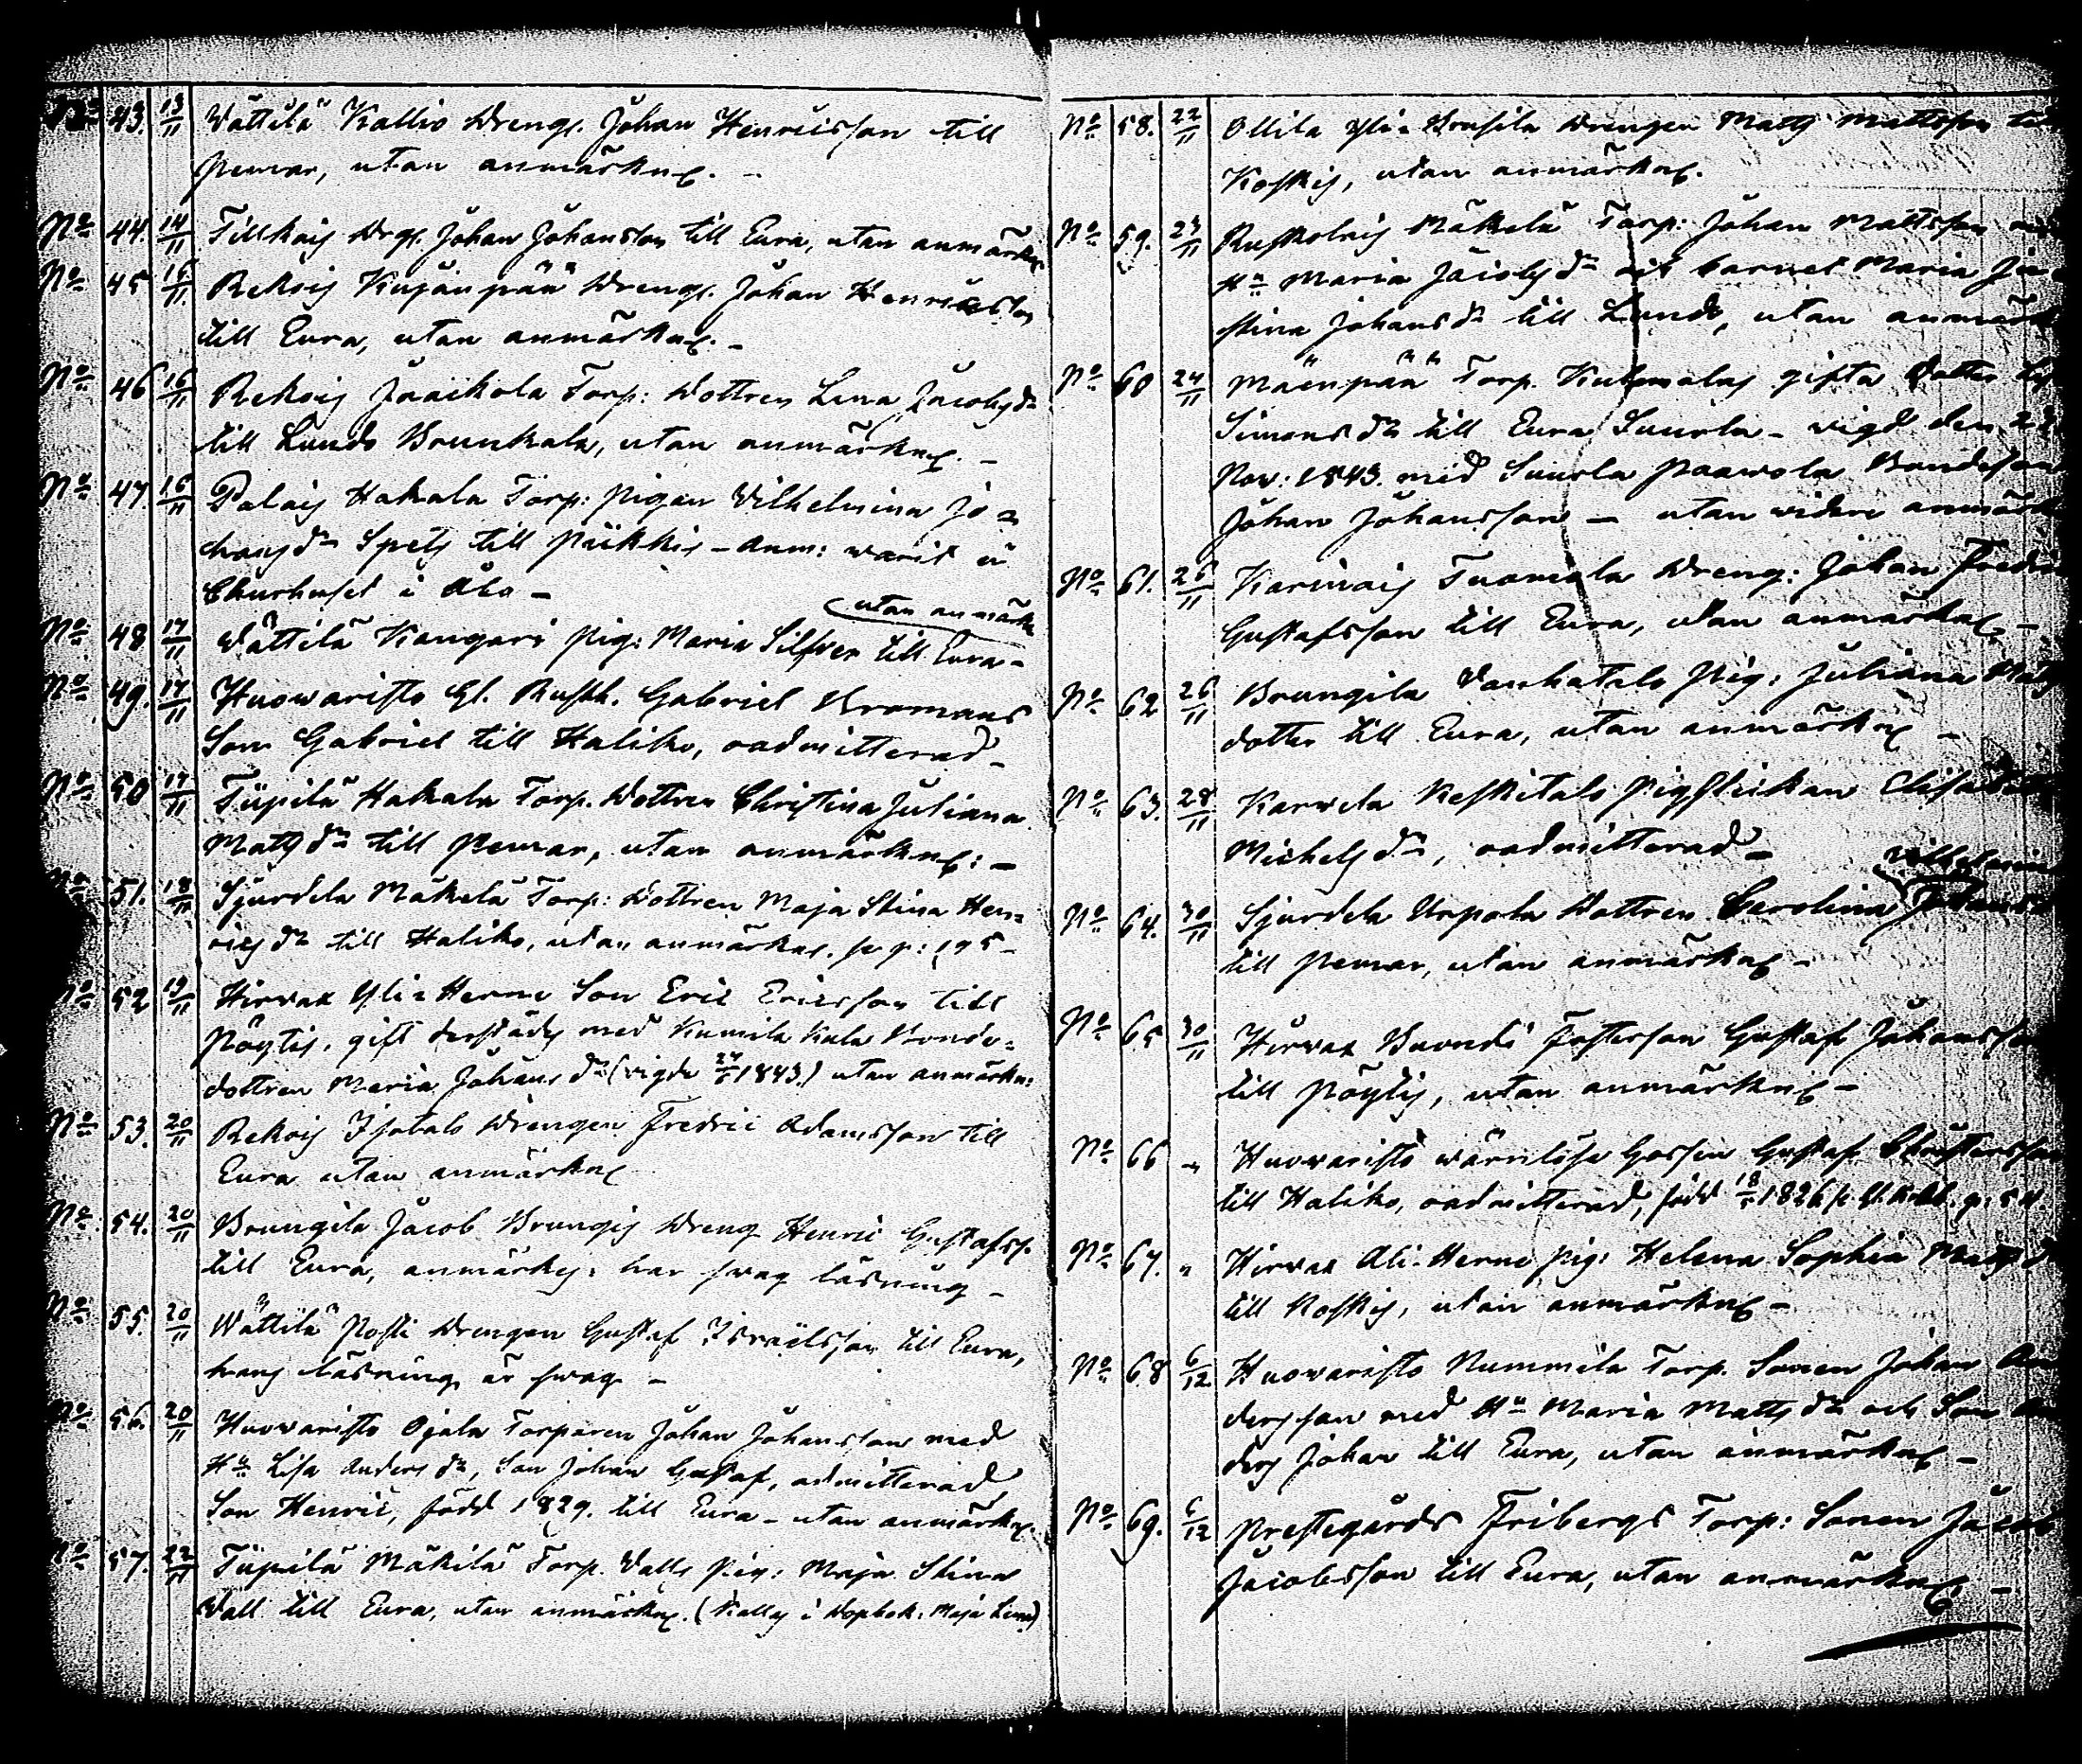 No 43. 13/11 Wättilä Kallio Drenge. Johan Henricsson till
Pemar, utan anmärkng. -
No 44. 14/11 Tillkais Drge. Johan Johansson till Eura, utan anmärkng
No 45 16/11 Rekois Kujanpää Drenge. Johan Henricsson
till Eura, utan anmärkng. -
No 46 16/11 Rekois Jaakola Torp: Dottren Lena Jacobsdr
till Lundo Brunkala, utan anmärkng. -
No 47. 16/11 Palais Hakala Torp: Pigan Wilhelmina Jo=
hansdr Spets till Pikkis - Anm: warit å
Churhuset i Åbo -
utan anmärkn
No 48 17/11 Wättilä Kangari Pig: Maria Silfver till Eura -
No 49. 17/11 Huowaristo Gl. Rusth. Gabriel Kromans
Son Gabriel till Haliko, oadmitterad -
No 50 17/11 Tiipilä Hakala Torp. Dottren Christina Juliana
Mattsdr till Pemar, utan anmärkng: -
No 51. 18/11 Sjurdela Mäkelä Torp: Dottren Maja Stina Hen=
ricsdr till Haliko, utan anmärkng. p: 195 -
No 52 19/11 Hirvax Yli-Herne Son Eric Ericsson till
Pöytis, gift derstädes med Kumila Kula Bonde=
dottren Maria Johansdr (vigde 1843.) utan anmärkn:
No 53. 20/11 Rekois Isotalo Drengen Fredric Adamsson till
Eura utan anmärkng
No 54. 20/11 Brungila Jacob Brungis Dreng Henric Gustafss.
till Eura, anmärkes: har swag läsning -
No 55. 20/11 Wättilä Posti Drengen Gustaf Israelsson till Eura,
hans läsning är swag -
No 56. 20/11 Huowaristo Ojala Torparen Johan Johansson med
Hu Lisa Andersdr, Son Johan Gustaf, admitterad
Son Henric, född 1829. till Eura - utan anmärkng.
No 57. 22/11 Tiipilä Mäkilä Torp. Walls Pig: Maja Stina
Wall till Eura, utan anmärkng. (Kallas i Dopbok: Maja Lena)
No 58. 22/11 Ollila Yli-Krusila Drengen Matts Mattsson till
Koskis, utan anmärkng.
No 59. 23/11 Ruskolais Mäkelä Torp: Johan Mattsson
Hu Maria Jacobsdr och barnet Maria
stina Johansdr till Lundo, utan anmärk
No 60 24/11 Mäenpää Torp. gifta Dotter
Simonsdr till Eura Suurla - vigd den
Nov: 1843. med Suurla Paawola Bondeson
Johan Johansson - utan widare anmärk
No 61. 26/11 Karinais Tuomola Dreng: Johan Fredric
Gustafsson till Eura, utan anmärkng -
No 62 26/11 Brungila Wanhatalo Pig: Juliana Matts
dotter till Eura, utan anmärkng -
No 63. 28/11 Karwela Keskitalo Pigflickan Elisabeth
Michelsdr, oadmitterad -
Wilhelmina
No 64. 30/11 Sjurdela Urpola Dottren Carolina Johansdr
till Pemar, utan anmärkng -
No 65 30/11 Hirvax Fosterson Gustaf Johansson
till Pöytis, utan anmärkng -
No 66 " Huowaristo wärnlösa Gossen Gustaf
till Haliko, oadmitterad, född 1826
No 67. " Hirvax Ali-Herne Pig: Helena Sophia Mattsd
till Koskis, utan anmärkng -
No 68 6/12 Huowaristo Nummila Torp. Sonen Johan An
dersson med Hu Maria Mattsdr och Son An
ders Johan till Eura, utan anmärkng -
No 69. 6/12 Prestegårds Fribergs Torp: Sonen Jacob
Jacobsson till Eura, utan anmärkng -